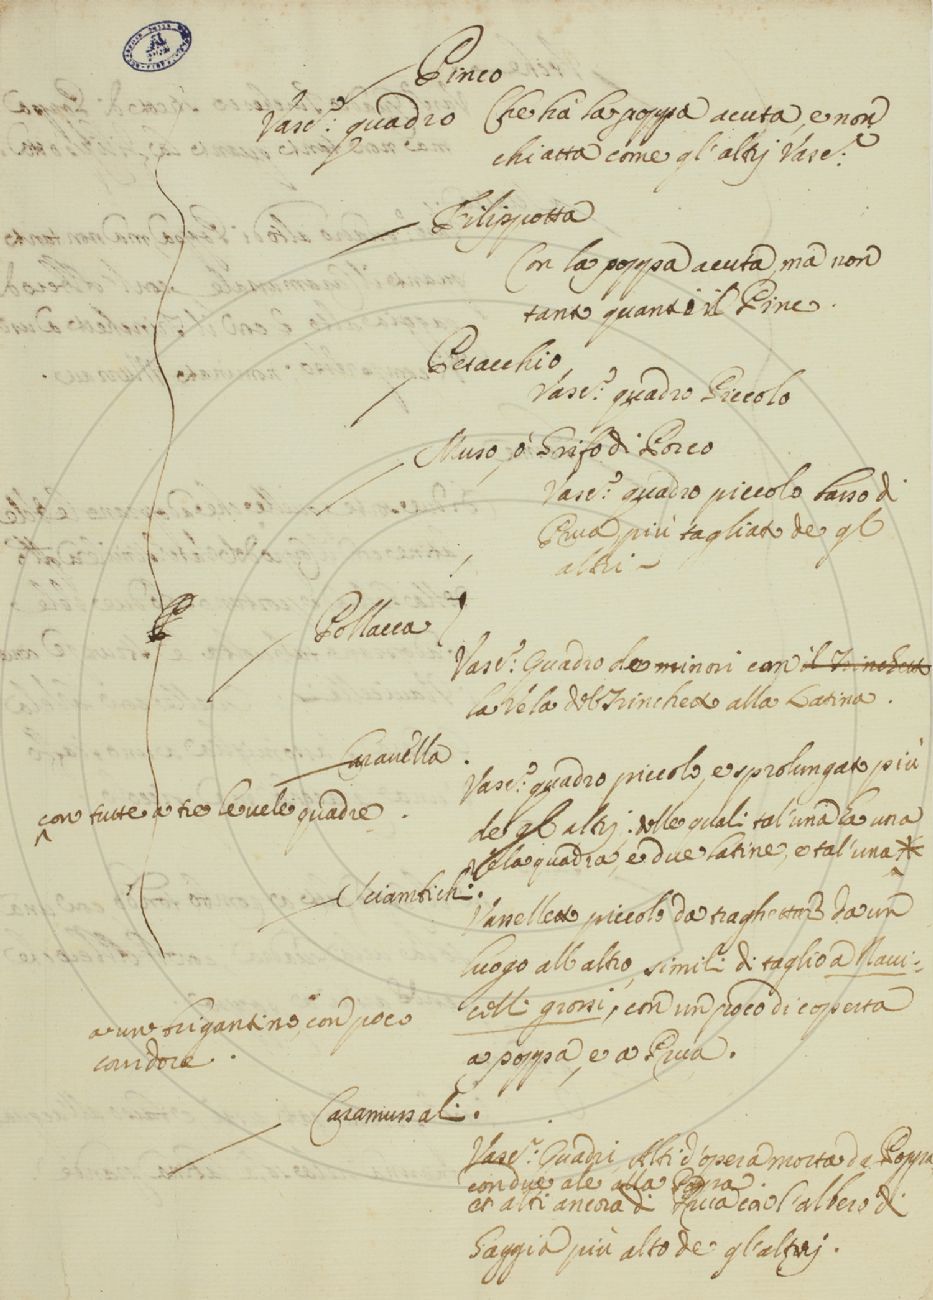 Pinco
Vasc.º quadro Che hà la poppa acuta, e non
chiatta come gl'altrj Vasc.º
Filippotta
Con la poppa acuta, mà non
tanto quanto il Pinc.
Petacchio
Vasc.º quadro Piccolo
Muso, ò Grifo di Porco
Vasc.º quadro piccolo basso di
Prua più tagliato de gl
altri -
Pollacca
Vasc.º Quadro de minori con il Trinchetto
la Vela del Trinchetto alla Latina.
Caravella.
Vasc.º quadro piccolo, e sprolungato più
con tutte a tre le vele quadre. de gl altrj. delle quali tal'una hà una
Vela quadra, e due latine, e tal'una
Sciambich.
Vasselletto piccolo da traghettar da un
luogo all'altro, simili di taglio a Navi-
celli grossi, con un poco di coperta
a un brigantino, con poco
corridore.
a poppa, e a Prua.
Caramussali.
Vasc.º Quadri Alti d'opera morta da Poppa
con due ale alla Poppa.
et alti ancora di Prua co l'albero di
Gaggia più alto de gl'altrj.